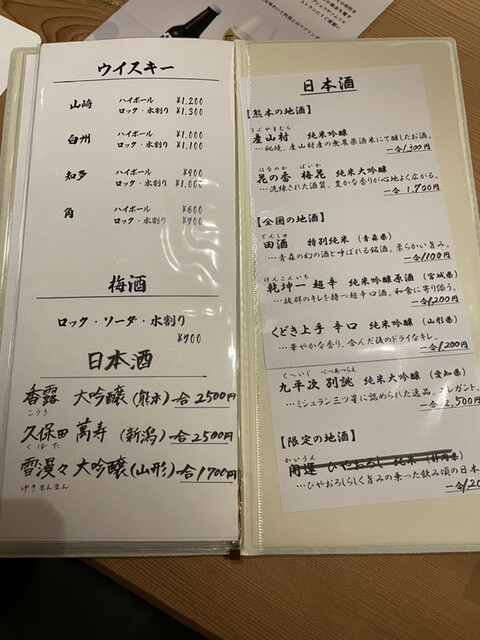 ウイスキー
山崎 ハイボール ¥1,200
ロック・水割り ¥1,300
白州 ハイボール ¥1,000
ロック・水割り ¥1,100
知多 ハイボール ¥900
ロック・水割り ¥1,000
角 ハイボール ¥600
ロック・水割り ¥700
梅酒
ロック・ソーダ・水割り
¥700
日本酒
香露 大吟醸(熊本)一合2500円
こうろ
久保田 萬寿(新潟)一合2500円
くぼた
雪漫々 大吟醸(山形)一合1700円
げきまんまん
日本酒
【熊本の地酒】
うぶやまむら
産山村 純米吟醸
…秘境、産山村産の無農薬酒米にて醸したお酒。
一合1,300円
はなのか ばいか
花の香 梅花 純米大吟醸
…洗練された酒質、豊かな香りが心地よく広がる。
一合1,700円
【全国の地酒】
でんしゅ
田酒 特別純米(青森県)
…青森の幻の酒と呼ばれる銘酒。柔らかい旨み。
一合1100円
けんこんいち
乾坤一 超辛 純米吟醸原酒(宮城県)
…抜群のキレを持つ超辛口酒。和食に寄り添う。
一合1,200円
くどき上手 辛口 純米吟醸(山形県)
…華やかな香り、含んだ後のドライなキレ。
一合1,200円
くへいじ べつあつらえ
九平次 別誂 純米大吟醸(愛知県)
…ミシュラン三ツ星に認められた逸品。エレガント。
一合2,500円
【限定の地酒】
かいうん
開運 ひやおろし 純米(静岡県)
…ひやおろしらしく旨みの乗った飲み頃の日本
一合1,20